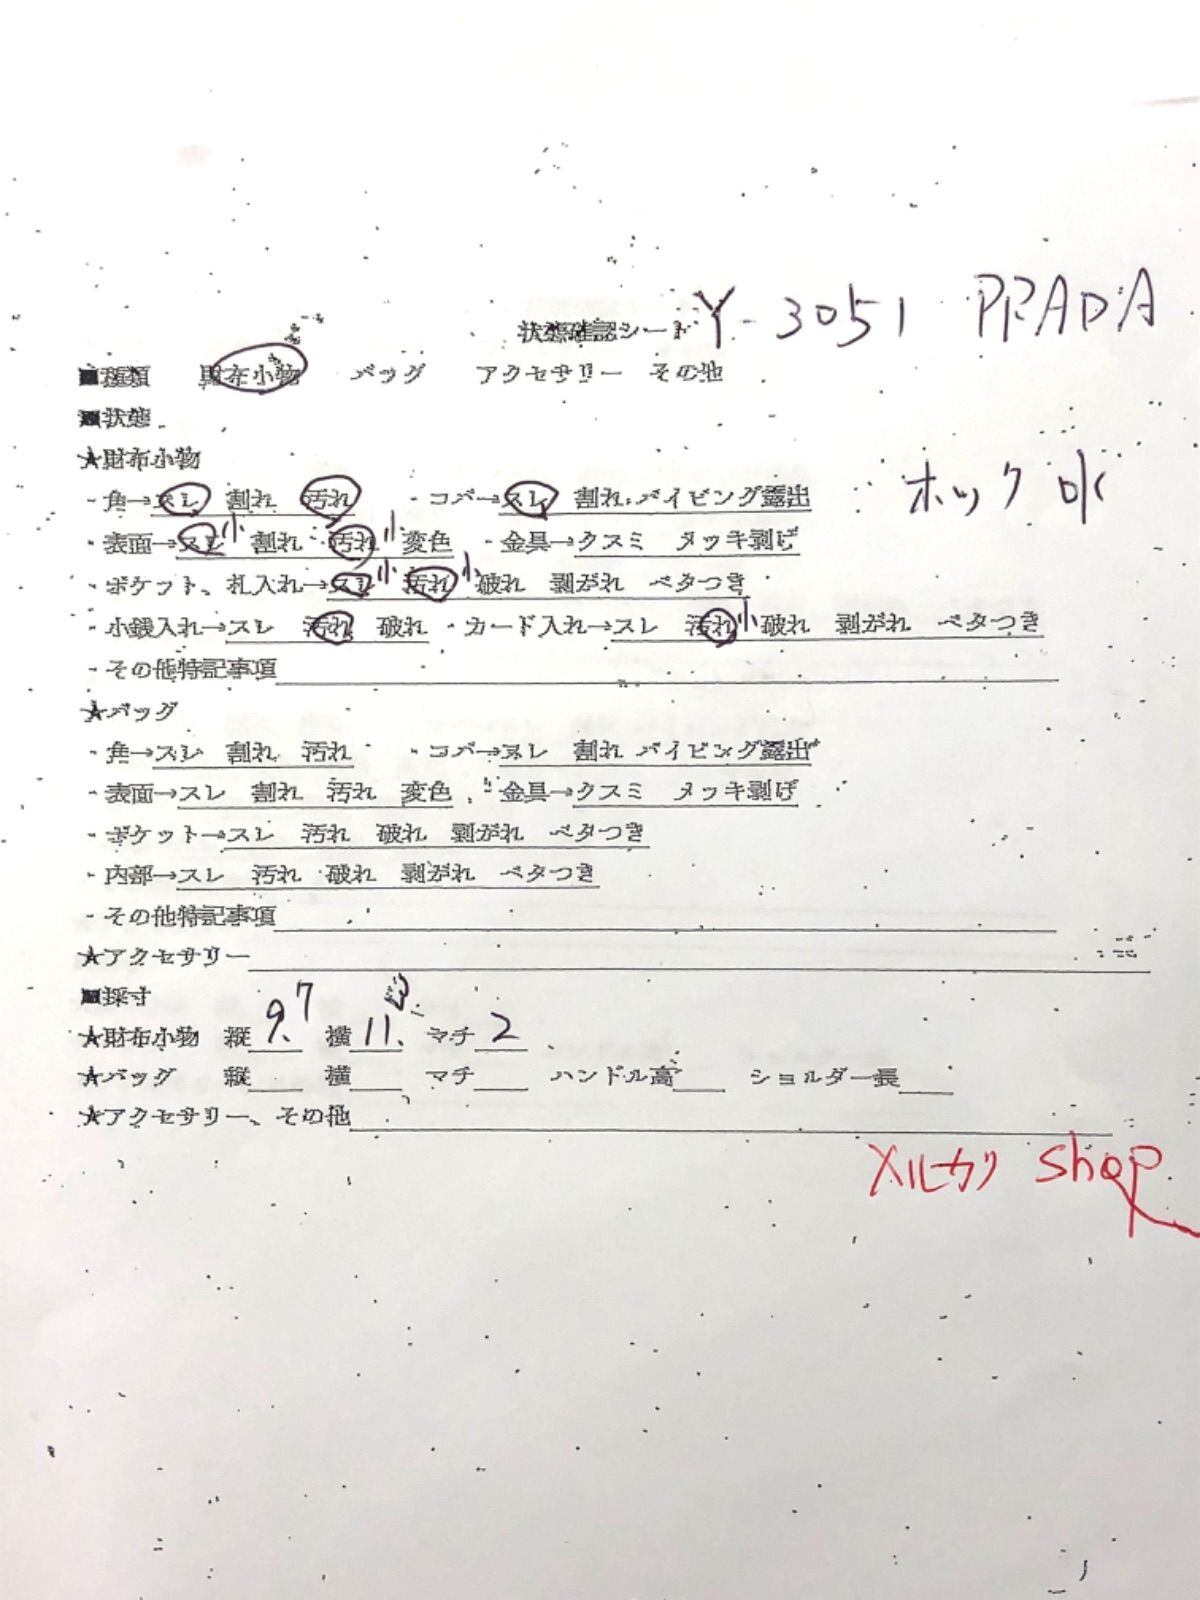 Y-3051 PRADA
状態確認シート
■種類 財布小物 バッグ アクセサリー その他
■状態
★財布小物
・角→スレ 割れ 汚れ ・コバ→スレ 割れ パイピング露出
ホック
・表面→スレ小 割れ 汚れ小 変色 ・金具→クスミ メッキ剥げ
・ポケット、札入れ→スレ小 汚れ小 破れ 剥がれ ベタつき
・小銭入れ→スレ 汚れ 破れ ・カード入れ→スレ 汚れ小 破れ 剥がれ ベタつき
・その他特記事項
★バッグ
・角→スレ 割れ 汚れ ・コバ→スレ 割れ パイピング露出
・表面→スレ 割れ 汚れ 変色 ・金具→クスミ メッキ剥げ
・ポケット→スレ 汚れ 破れ 剥がれ ベタつき
・内部→スレ 汚れ 破れ 剥がれ ベタつき
・その他特記事項
★アクセサリー
■採寸
★財布小物 縦9.7 横11. マチ2
★バッグ 縦 横 マチ ハンドル高 ショルダー長
★アクセサリー、その他
メルカリ shop